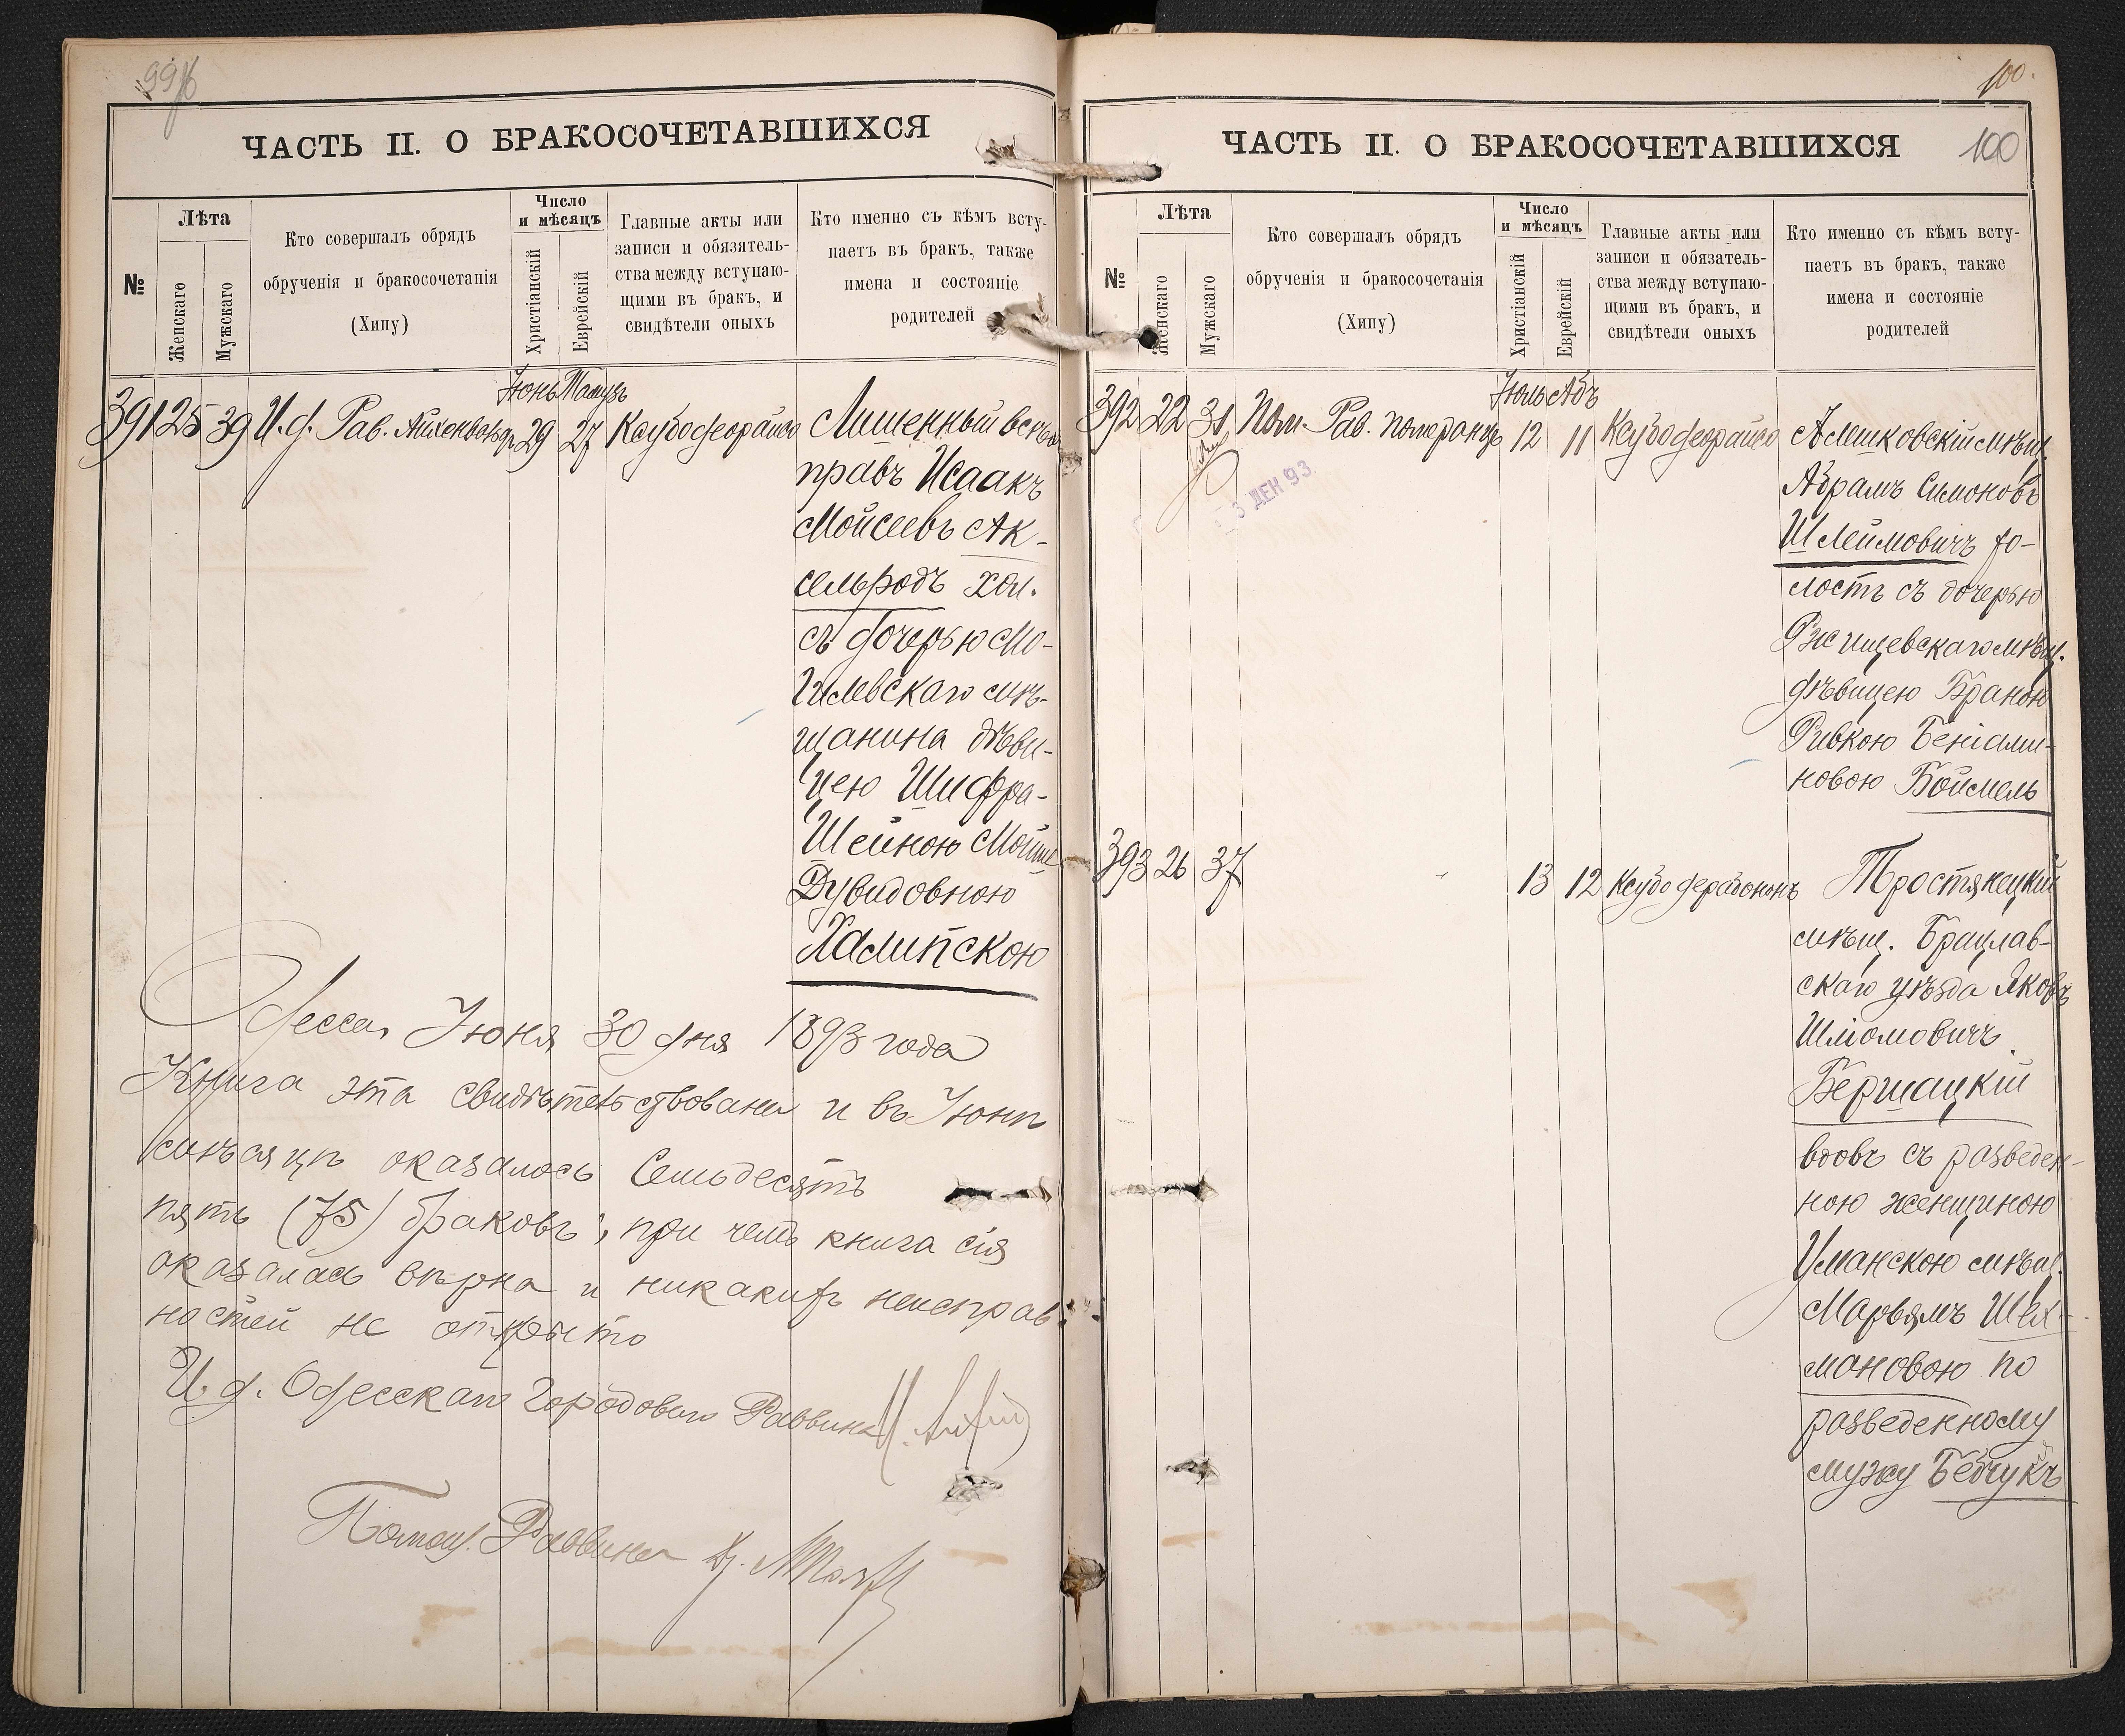 99
ЧАСТЬ II. О БРАКОСОЧЕТАВШИХСЯ
№
Лѣта
Женскаго
Мужскаго
Кто совершалъ обрядъ
обрученія и бракосочетанія
(Хипу)
Число
и мѣсяцъ
Христіанскій
Еврейскій
Главные акты или
записи и обязатель-
ства между вступаю-
щими въ бракъ, и
свидѣтели оныхъ
Кто именно съ кѣмъ всту-
паетъ въ бракъ, также
имена и состояніе
родителей
Іюнь Тамузъ
391 25 39 И. д. Рав. 29 27 Лишенный всѣхъ
правъ Исаакъ
Мойсеевъ Ак-
сельродъ хол.
съ дочерью Мо-
гилевскаго мѣ-
щанина дѣви-
цею Шифра-
Шейною
Дувидовною
Халипскою
Одесса, Іюня 30 дня 1893 года
Книга эта свидѣтельствована и въ Іюнѣ
мѣсяцѣ оказалось Семьдесятъ
пять (75) браковъ, при чемъ книга сія
оказалась вѣрна и никакихъ неисправ-
ностей не открыто
И. д. Одесскаго Городового Раввина
Помощ. Раввина
100.
ЧАСТЬ II. О БРАКОСОЧЕТАВШИХСЯ
100
№
Лѣта
Женскаго
Мужскаго
Кто совершалъ обрядъ
обрученія и бракосочетанія
(Хипу)
Число
и мѣсяцъ
Христіанскій
Еврейскій
Главные акты или
записи и обязатель-
ства между вступаю-
щими въ бракъ, и
свидѣтели оныхъ
Кто именно съ кѣмъ всту-
паетъ въ бракъ, также
имена и состояніе
родителей
Іюль Абъ
392 22 31 Пом. Рав. Померанцъ 12 11 Алешковскій мѣщ.
Абрамъ Симоновъ
Шлеймовичъ хо-
лостъ съ дочерью
Ржищевскаго мѣщ.
дѣвицею Браною
Ривкою Беніами-
новою Боймель
ДЕК 93
393 26 37 13 12 Тростянецкій
мѣщ. Брацлав-
скаго уѣзда Яковъ
Шліомовичъ
Бершацкій
вдовъ съ разведен-
ною женщиною
Уманскою мѣщ.
Марьямъ Шех-
мановою по
разведенному
мужу Бейчукъ